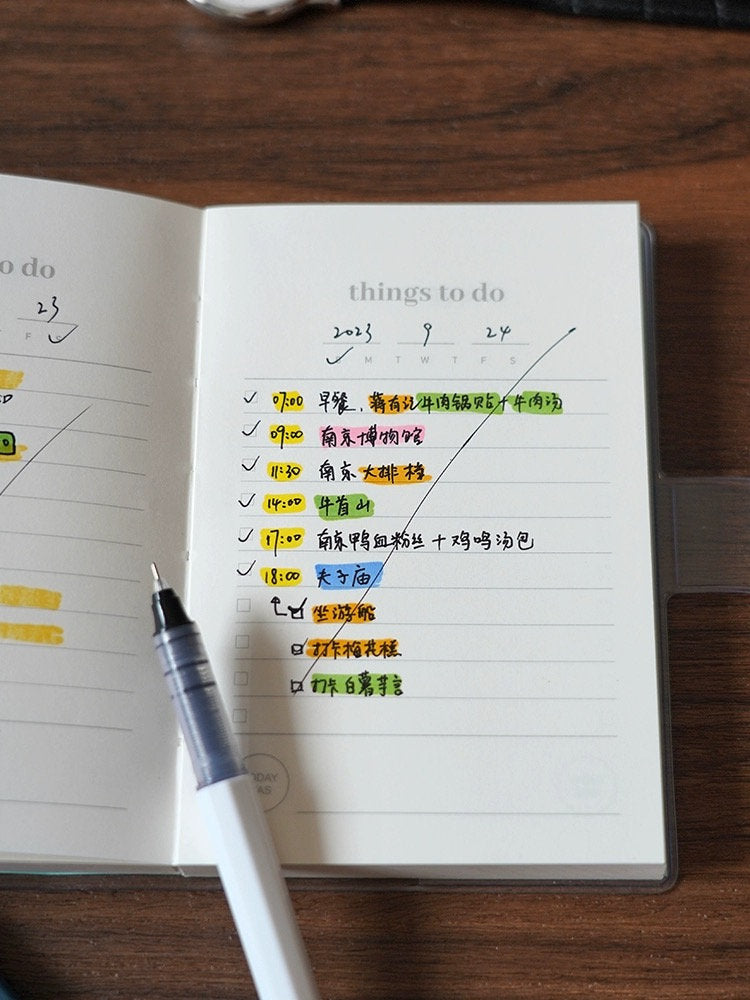 o do
23
F
things to do
2023 9 24
M T W T F S
07:00 早餐、蒋有记牛肉锅贴+牛肉汤
09:00 南京博物馆
11:30 南京大排档
14:00 牛首山
17:00 南京鸭血粉丝+鸡鸣汤包
18:00 夫子庙
坐游船
打卡梅花糕
打卡白薯芋苕
ODAY
AS